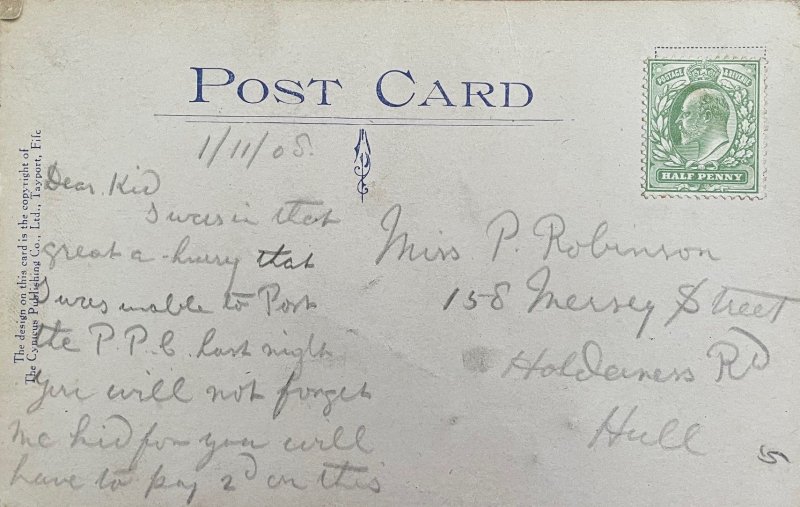 POST CARD
POSTAGE & REVENUE
HALF PENNY
The design on this card is the copyright of
The Cynicus Publishing Co., Ltd., Tayport, Fife
1/11/08.
Dear Kid
I was in that
great a hurry that
I was unable to Post
the P.P.C. last night
You will not forget
me kid for you will
have to pay 2d on this
Miss P. Robinson
158 Mersey Street
Holderness Rd
Hull
5